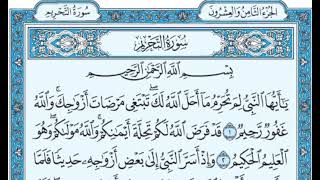 سُورَةُ التَّحْرِيمِ
الجُزْءُ الثَّامِنُ وَالعِشْرُونَ
سُورَةُ التَّحْرِيمِ
بِسْمِ اللَّهِ الرَّحْمَٰنِ الرَّحِيمِ
يَا أَيُّهَا النَّبِيُّ لِمَ تُحَرِّمُ مَا أَحَلَّ اللَّهُ لَكَ ۖ تَبْتَغِي مَرْضَاتَ أَزْوَاجِكَ ۚ وَاللَّهُ
غَفُورٌ رَّحِيمٌ ١ قَدْ فَرَضَ اللَّهُ لَكُمْ تَحِلَّةَ أَيْمَانِكُمْ ۚ وَاللَّهُ مَوْلَاكُمْ ۖ وَهُوَ
الْعَلِيمُ الْحَكِيمُ ٢ وَإِذْ أَسَرَّ النَّبِيُّ إِلَىٰ بَعْضِ أَزْوَاجِهِ حَدِيثًا فَلَمَّا